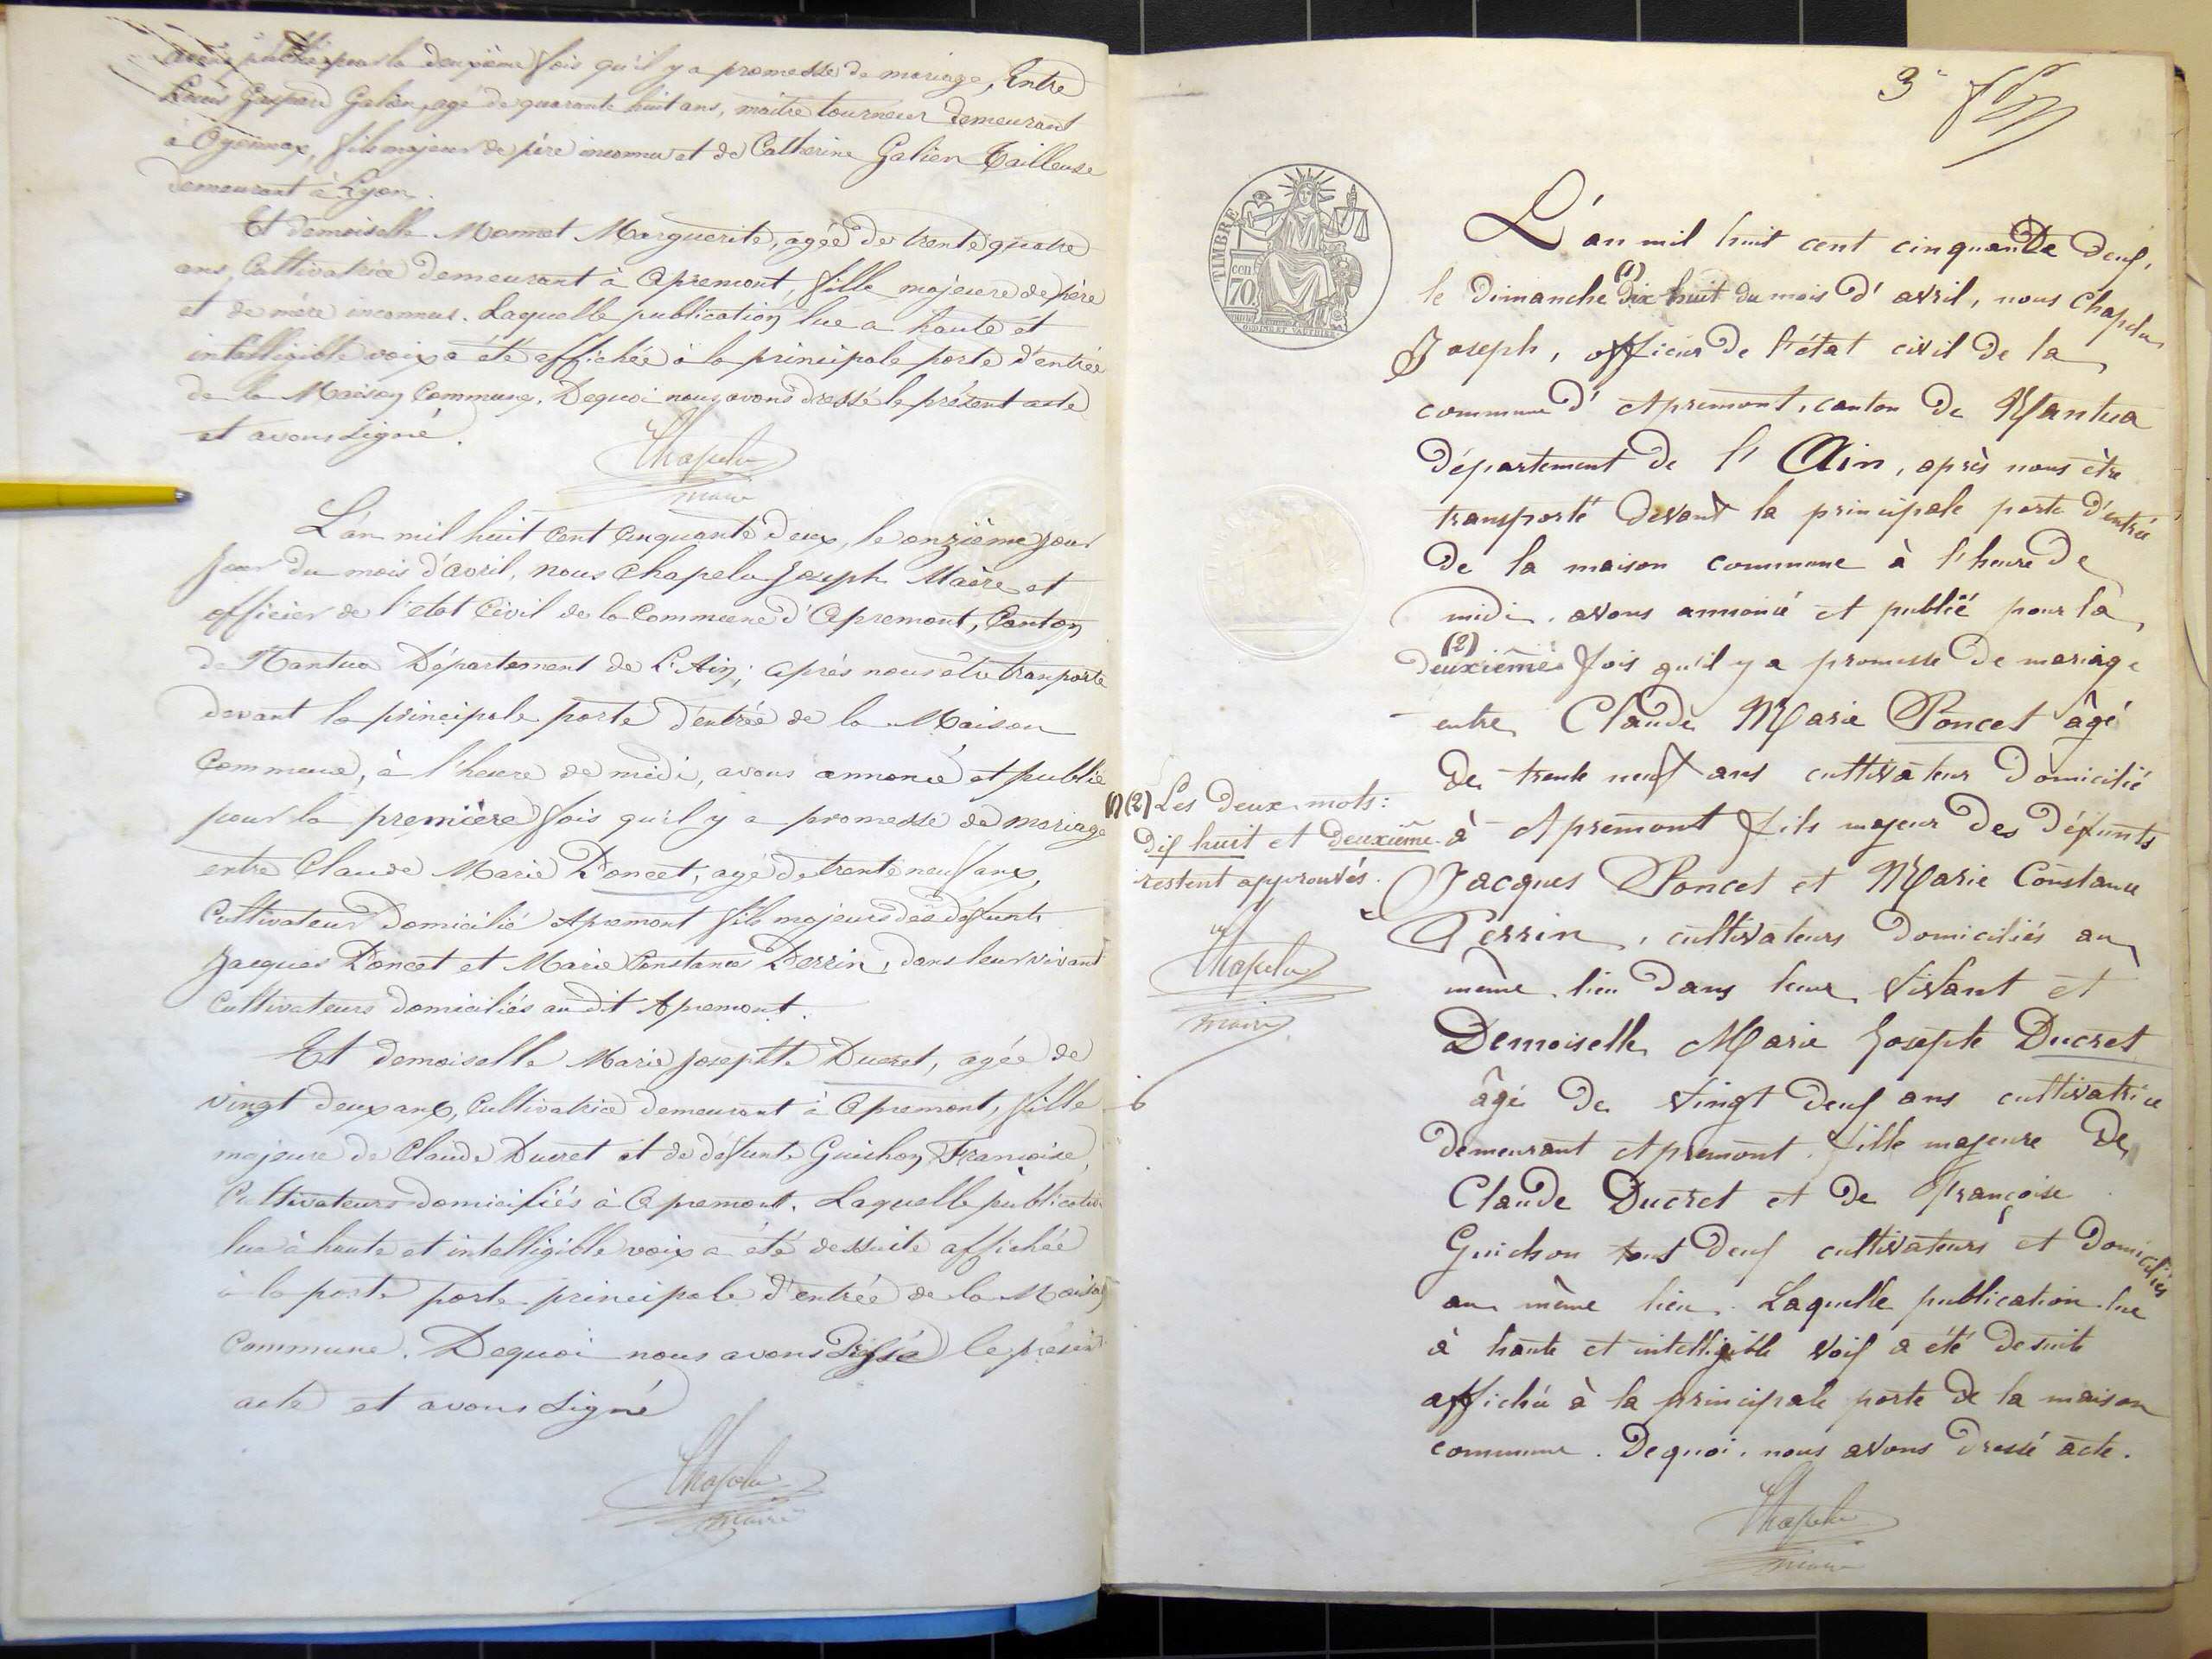 avons publié pour la deuxième fois qu'il y a promesse de mariage, Entre
Louis Gaspard Galien, agé de quarante huit ans, maître tourneur demeurant
à Oyonnax, fils majeur de père inconnu et de Catherine Galien Tailleuse
demeurant à Lyon.
Et demoiselle Monnet Marguerite, agée de trente quatre
ans, Cultivatrice demeurant à Apremont, fille majeure de père
et de mère inconnus. Laquelle publication lue a haute et
intelligible voix a été affichée à la principale porte d'entrée
de la Maison Commune. Dequoi nous avons dressé le présent acte
et avons signé.
Chapelu
maire
L'an mil huit cent cinquante deux, le onzième jour
jour du mois d'avril, nous Chapelu Joseph Maire et
officier de l'etat Civil de la Commune d'Apremont, Canton
de Nantua Département de L'Ain; après nous etre transporté
devant la principale porte d'entrée de la Maison
Commune, à l'heure de midi, avons annoncé et publié
pour la première fois qu'il y a promesse de mariage
entre Claude Marie Poncet, agé de trente neuf ans,
Cultivateur Domicilié Apremont fils majeurs des défunts
Jacques Poncet et Marie Constance Perrin, dans leur vivant
Cultivateurs domiciliés au dit Apremont.
Et demoiselle Marie Josephte Ducret, agée de
vingt deux ans, Cultivatrice demeurant à Apremont, fille
majeure de Claude Ducret et de défunte Guichon Francoise,
Cultivateurs domiciliés à Apremont. Laquelle publication
lue à haute et intelligible voix a été dessuite affichée
à la porte porte principale d'entrée de la Maison
Commune. Dequoi nous avons dressé le présent
acte et avons signé
Chapelu
maire
3
TIMBRE
70
L'an mil huit cent cinquante deux,
le Dimanche (1) dix huit du mois d'avril, nous Chapelu
Joseph, officier de l'état civil de la
commune d'Apremont, canton de Nantua
département de l'Ain, après nous être
transporté devant la principale porte d'entrée
de la maison commune à l'heure de
midi, avons annoncé et publié pour la
(2) deuxième fois qu'il y a promesse de mariage
entre Claude Marie Poncet âgé
de trente neuf ans cultivateur Domicilié
à Apremont fils majeur des défunts
Jacques Poncet et Marie Constance
Perrin, cultivateurs domiciliés au
même lieu dans leur vivant et
Demoiselle Marie Josephte Ducret
âgé de vingt deux ans cultivatrice
demeurant Apremont. fille majeure de
Claude Ducret et de Françoise
Guichon tout deux cultivateurs et Domiciliés
au même lieu. Laquelle publication lue
à haute et intelligible voix a été desuite
affichée à la principale porte de la maison
commune. De quoi nous avons dressé acte.
Chapelu
maire
(1) (2) Les deux mots:
dix huit et deuxième
restent approuvés.
Chapelu
maire